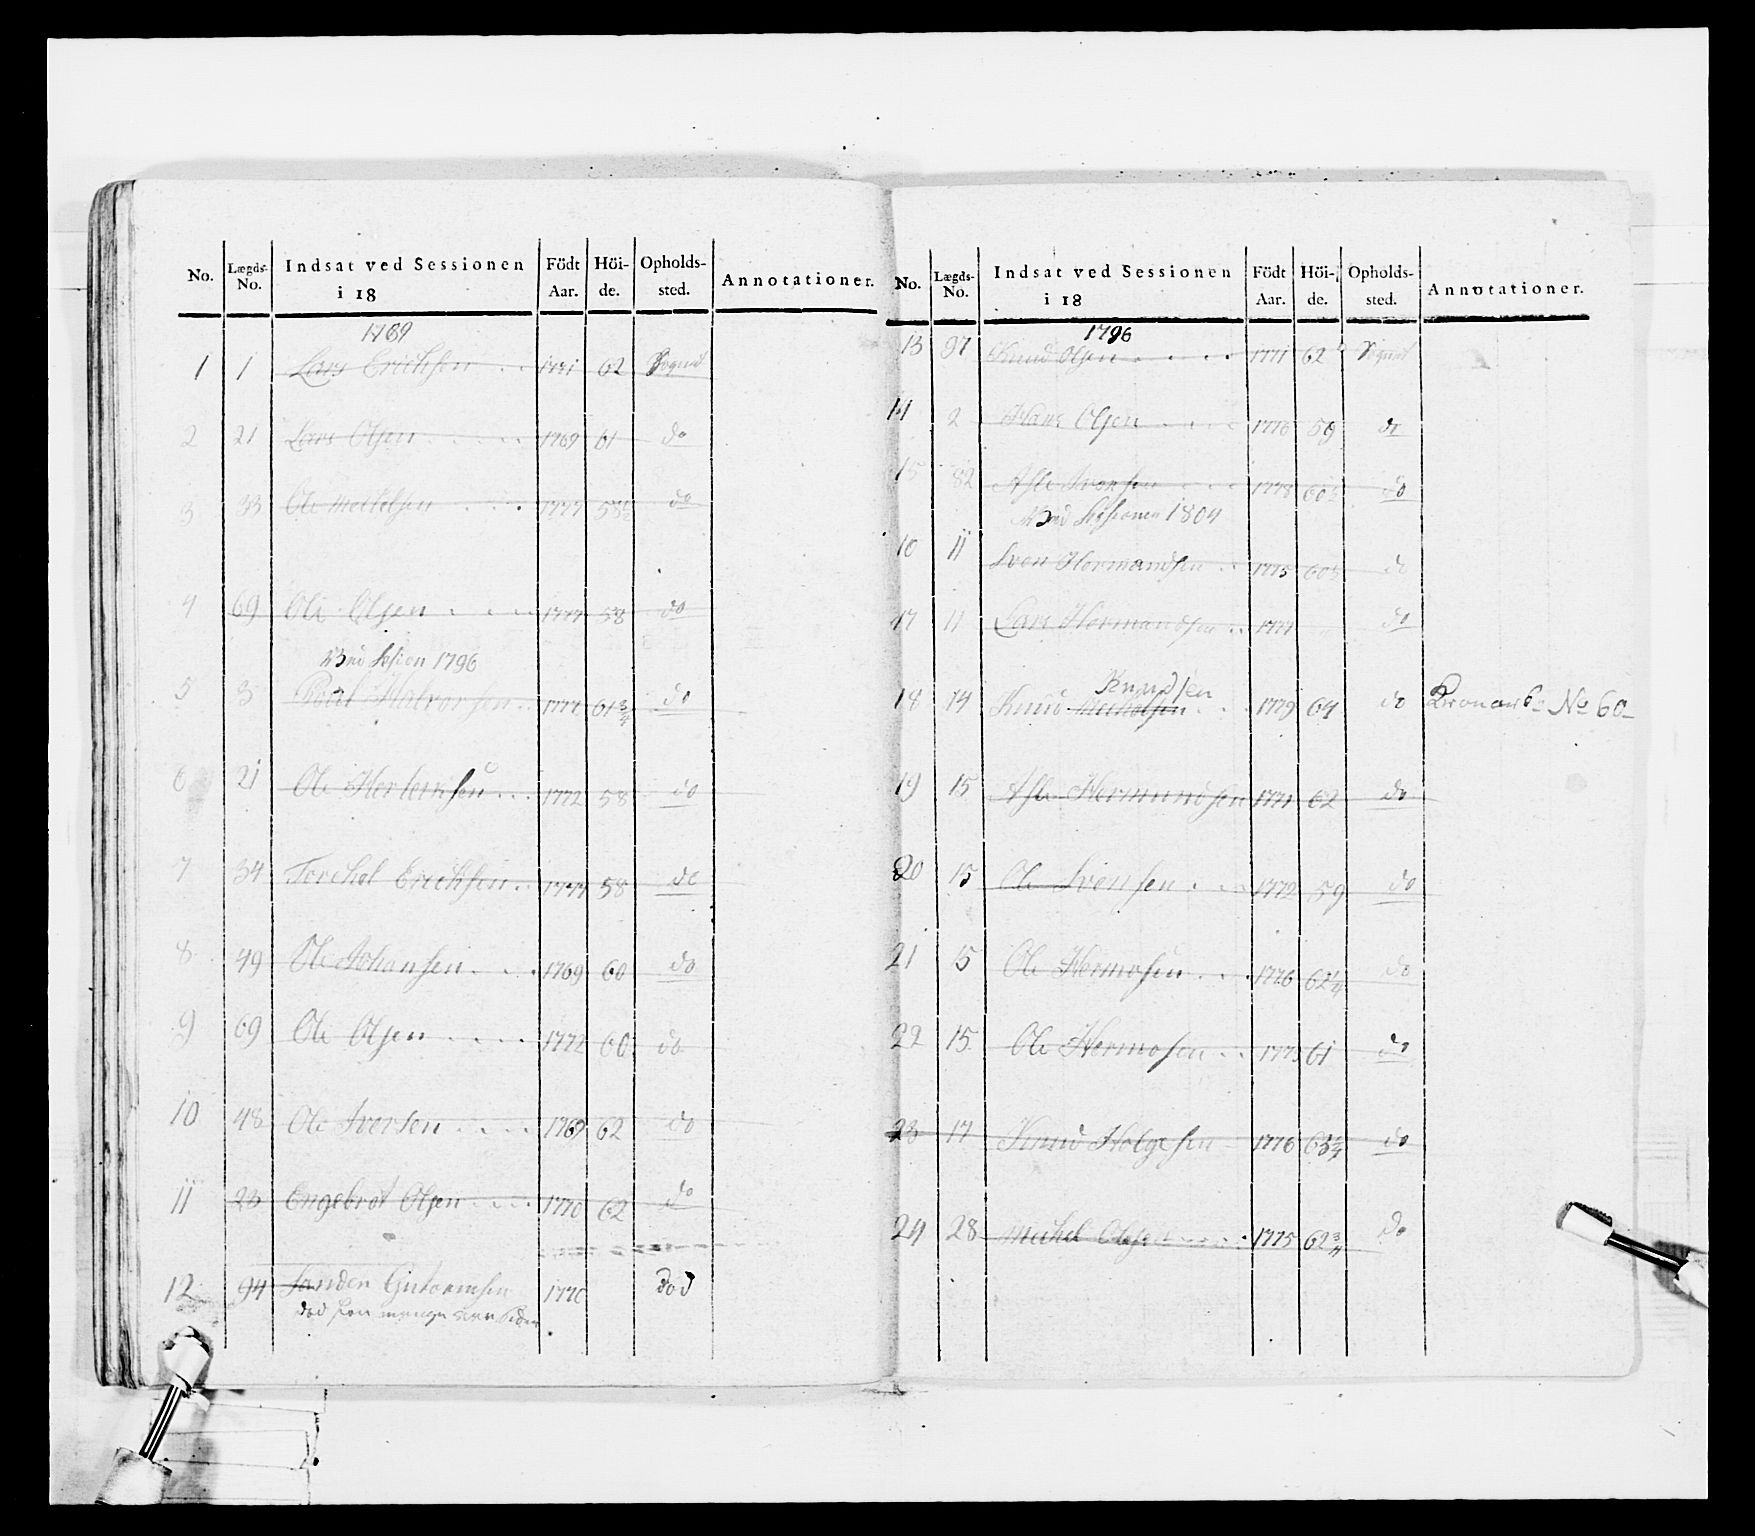 No. Lægds-No. Indsat ved Sessionen i 18 Födt Aar. Höi-de. Opholds-sted. Annotationer.
1789
1 1 Lars Erichsen 62 Sognet
2 21 Lars Olsen 1769 61 do
3 33 Ole Michelsen 1777 58½ do
4 69 Ole Olsen 1777 58 do
Ved Session 1796
5 3 Halvorsen 1777 61¾ do
6 21 Ole 1772 58 do
7 34 Torchel Erichsen 1777 58 do
8 49 Ole Johansen 1769 60 do
9 69 Ole Olsen 1772 60 do
10 48 Ole Iversen 1769 62 do
11 23 Engebret Olsen 1770 62 do
12 94 Guttormsen 1770 död
död for mange Aar siden
No. Lægds-No. Indsat ved Sessionen i 18 Födt Aar. Höi-de. Opholds-sted. Annotationer.
1796
13 97 Knud Olsen 1771 62 Sognet
14 2 Hans Olsen 1776 59 do
15 82 Asle Iversen 1778 60½ do
Ved Sessionen 1804
16 11 Sven Hermandsen 1775 60½ do
17 11 Lars Hermandsen 1777 " do
Knudsen
18 14 Knud Michelsen 1779 64 do No 60
19 15 Asle Hermundsen 1771 62 do
20 15 Ole Svensen 1772 59 do
21 15 Ole Hermosen 1776 62¼ do
22 15 Ole Hermosen 1773 61 do
23 17 Knud Holgesen 1776 63¾ do
24 28 Michel Olsen 1775 62¾ do